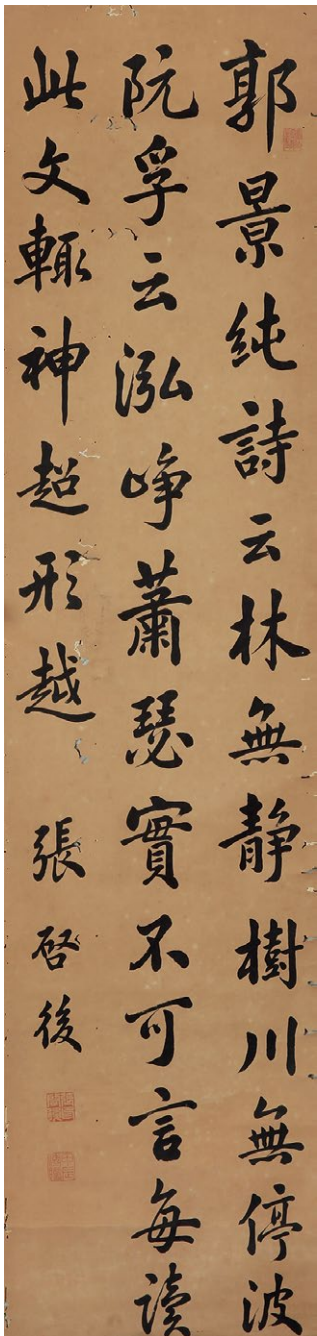 郭景純詩云林無静樹川無停波
阮孚云泓崢蕭瑟實不可言每讀
此文輒神超形越
張啓後